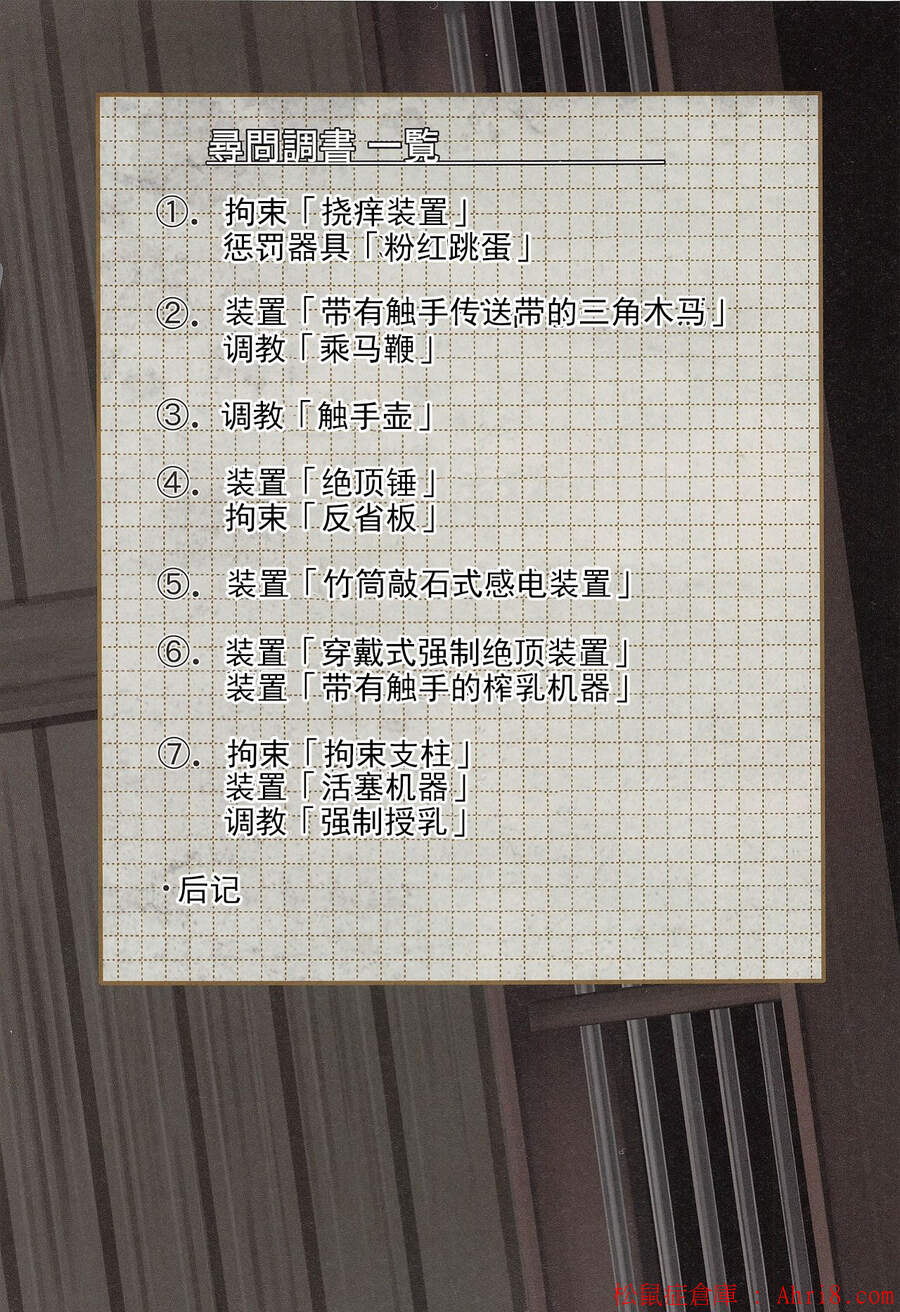 尋問調書 一覧
①. 拘束「挠痒装置」
惩罚器具「粉红跳蛋」
②. 装置「带有触手传送带的三角木马」
调教「乘马鞭」
③. 调教「触手壶」
④. 装置「绝顶锤」
拘束「反省板」
⑤. 装置「竹筒敲石式感电装置」
⑥. 装置「穿戴式强制绝顶装置」
装置「带有触手的榨乳机器」
⑦. 拘束「拘束支柱」
装置「活塞机器」
调教「强制授乳」
·后记
松鼠症倉庫 : Ahri8.com